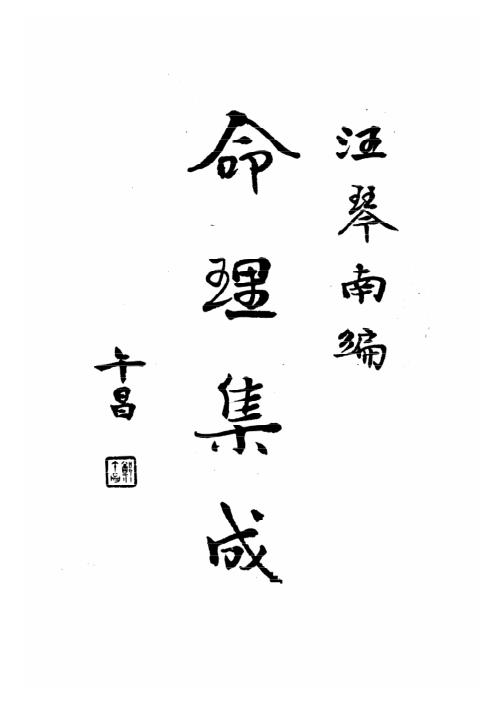 汪琴南編
命理集成
午昌